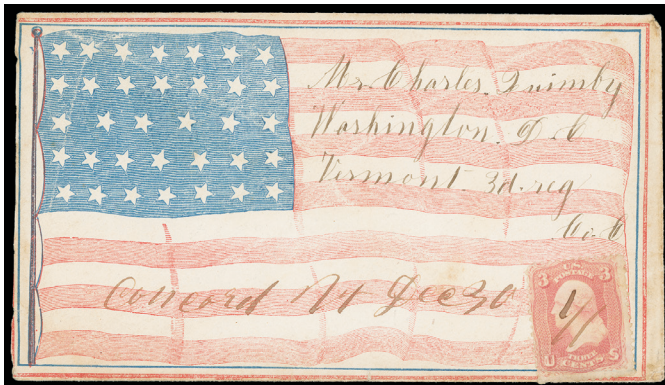 Mr. Charles. Quimby
Washington. D. C
Vermont. 3d. reg
Co. C
Concord Vt Dec 30
U.S.
POSTAGE
3 3
1
THREE
CENTS
U S